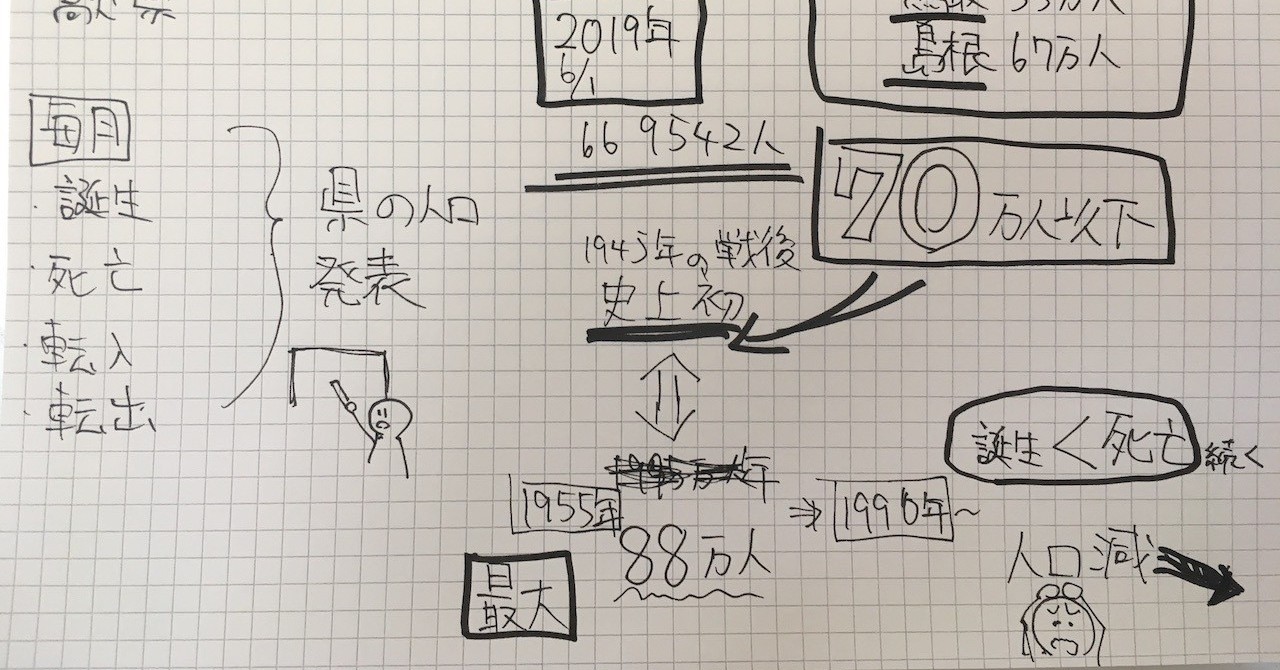 2019年
6/1
島根 67万人
669542人
70万人以下
毎月
・誕生
・死亡
・転入
・転出
県の人口
発表
1945年の戦後
史上初
1955年
88万人
最大
⇒ 1990年~
誕生<死亡 続く
人口減